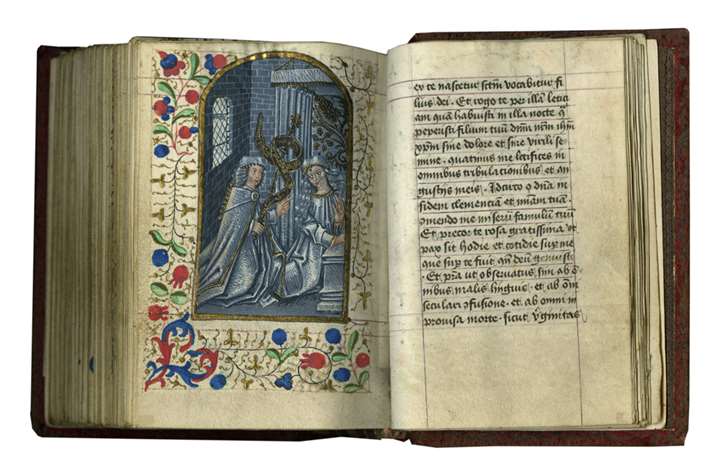 ex te nascetur sctm vocabitur fi
lius dei. Et rogo te per illā letici
am quā habuisti in illa nocte q̄
peperisti filium tuū dnm nrm ihm
xp̄m sine dolore et sine virili se
mine. quatinus me letifices in
omnibus tribulationibus et an
gustiis meis. Idcirco o dn̄a in
fidem clementiā et manū tuam
omendo me miserū famulum tuū
Et precor te rosa gratissima ut
pax sit hodie et cotidie sup me
que sup te fuit qn̄ deū genuisti
Et pr̄a ut obseruatus sim ab o
mnibus malis linguis. et ab om̄i
seculari ofusione. et ab omni in
prouisa morte. sicut v̄ginitas